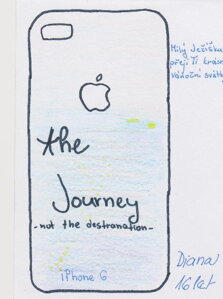 Milý Ježíšku
přeji Ti krásn
vánoční svátk
the
Journey
- not the destranation -
iPhone 6
Diana
16 let